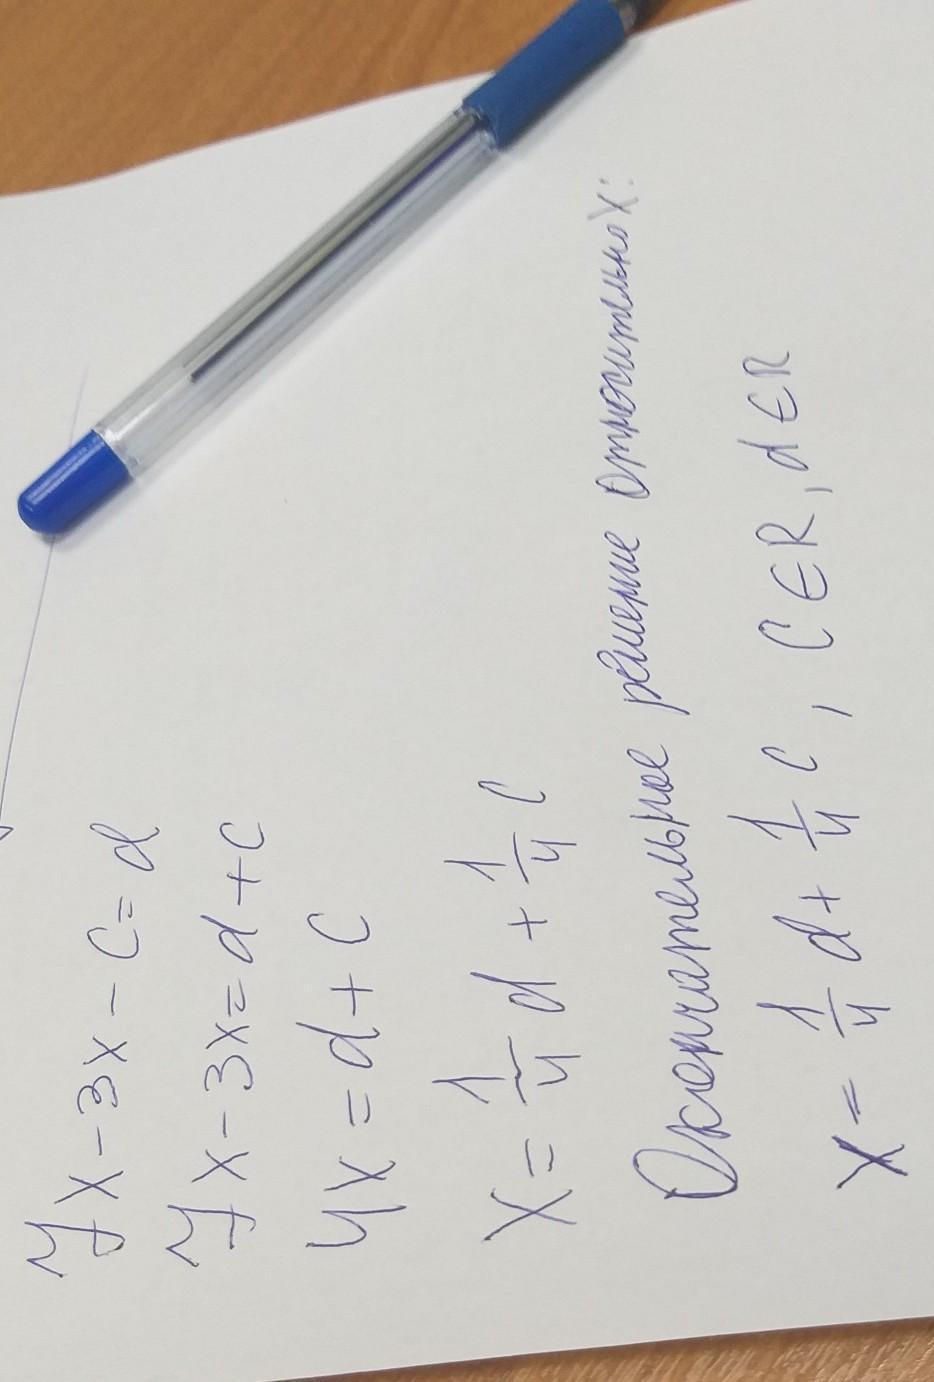 7x - 3x - c = d
7x - 3x = d + c
4x = d + c
x = 1/4 d + 1/4 c
Окончательное решение относительно x:
x = 1/4 d + 1/4 c, c ∈ R, d ∈ R